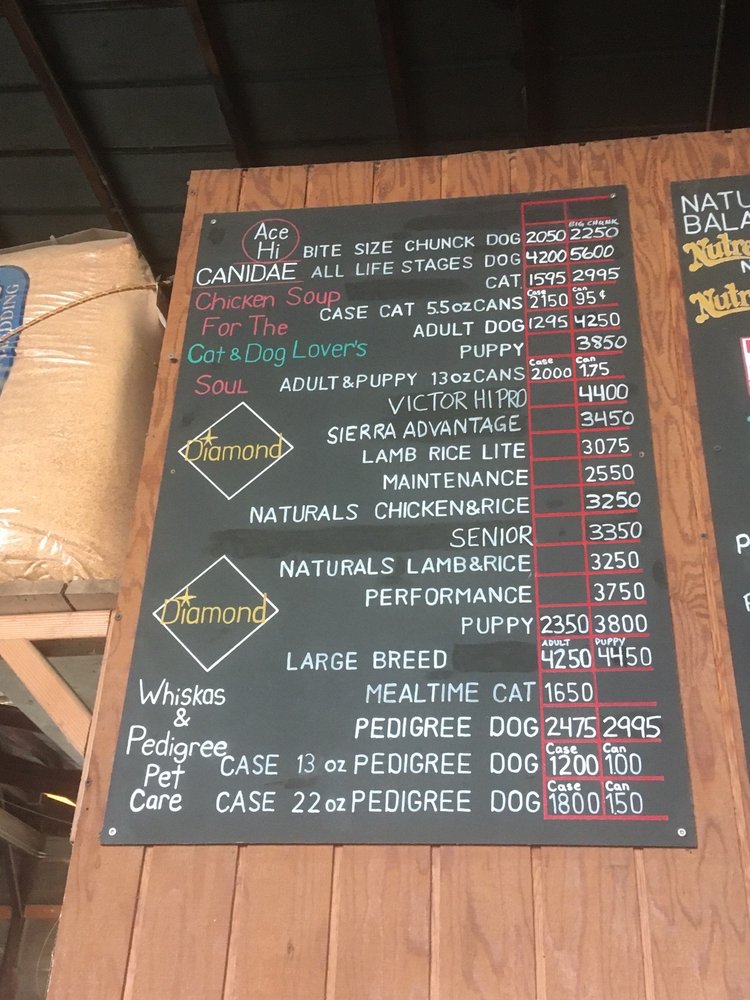 Ace
Hi
BIG CHUNK
BITE SIZE CHUNCK DOG 2050 2250
CANIDAE ALL LIFE STAGES DOG 4200 5600
CAT. 1595 2995
Chicken Soup
Case Can
CASE CAT 5.5ozCANS 2150 95¢
For The
ADULT DOG 1295 4250
Cat & Dog Lover's
PUPPY 3850
Soul
Case Can
ADULT&PUPPY 13ozCANS 2000 1.75
VICTOR HI PRO 4400
SIERRA ADVANTAGE 3450
Diamond
LAMB RICE LITE 3075
MAINTENANCE 2550
NATURALS CHICKEN&RICE 3250
SENIOR 3350
NATURALS LAMB&RICE 3250
Diamond
PERFORMANCE 3750
PUPPY 2350 3800
ADULT PUPPY
LARGE BREED 4250 4450
Whiskas
&
Pedigree
Pet
Care
MEALTIME CAT 1650
PEDIGREE DOG 2475 2995
Case Can
CASE 13 oz PEDIGREE DOG 1200 100
Case Can
CASE 22oz PEDIGREE DOG 1800 150
NATU
BALA
Nutr
N
Nutr
DDING